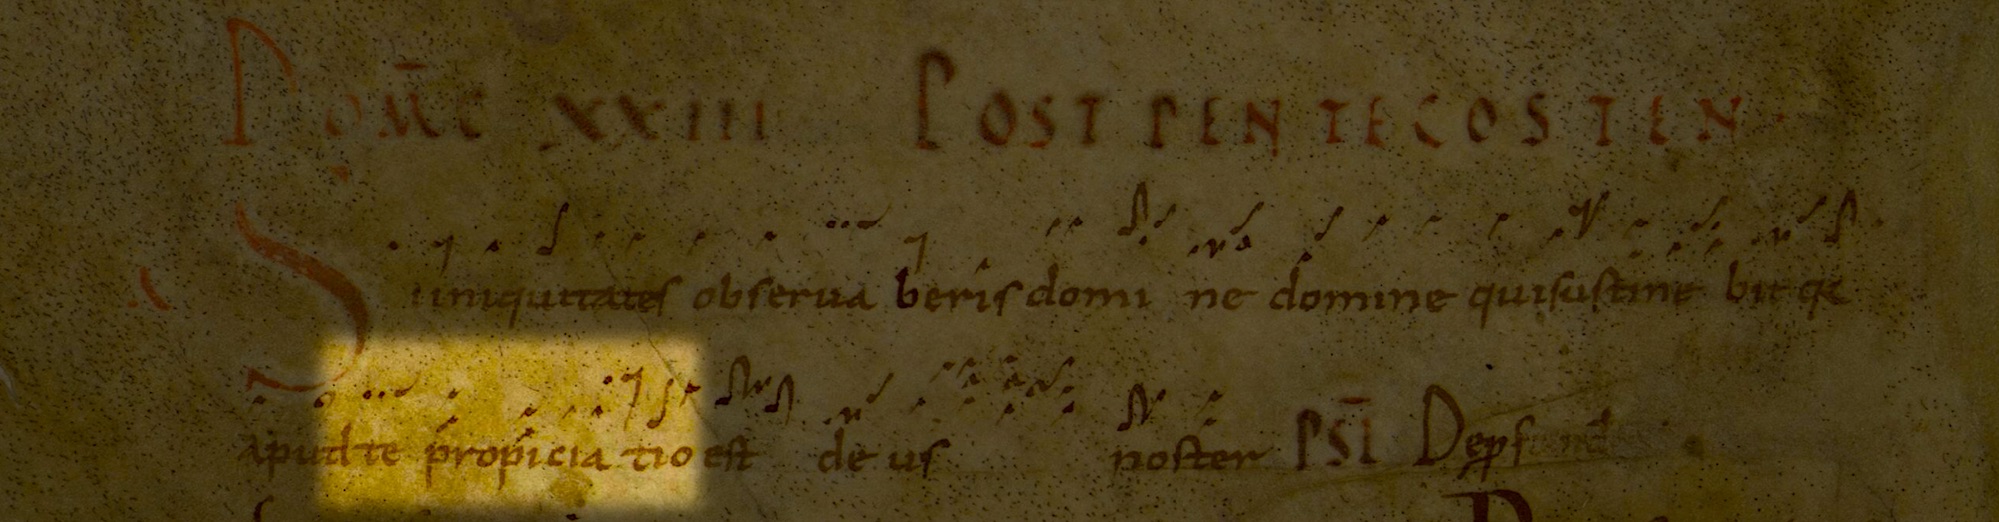 DOM̄C XXIII POST PENTECOSTEN
Si iniquitates observa beris domi ne domine quis sustine bit qa
apud te propicia tio est de us noster PSL̄ De pf